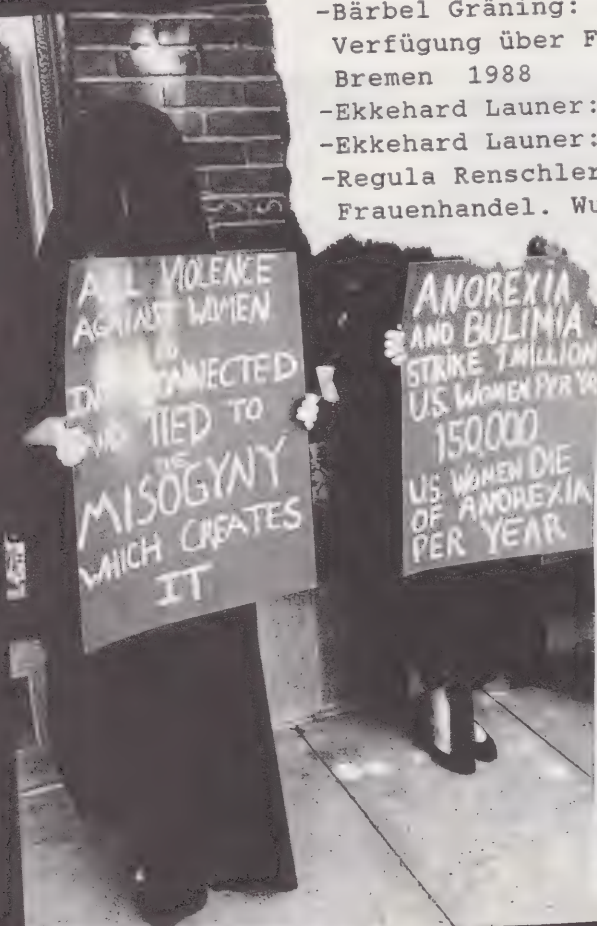 -Bärbel Gräning:
Verfügung über F
Bremen 1988
-Ekkehard Launer:
-Ekkehard Launer:
-Regula Renschler
Frauenhandel. Wu
ALL VIOLENCE
AGAINST WOMEN
IS
INTERCONNECTED
AND TIED TO
THE
MISOGYNY
WHICH CREATES
IT
ANOREXIA
AND BULIMIA
STRIKE 1 MILLION
U.S. WOMEN PER
150,000
US WOMEN DIE
OF ANOREXIA
PER YEAR